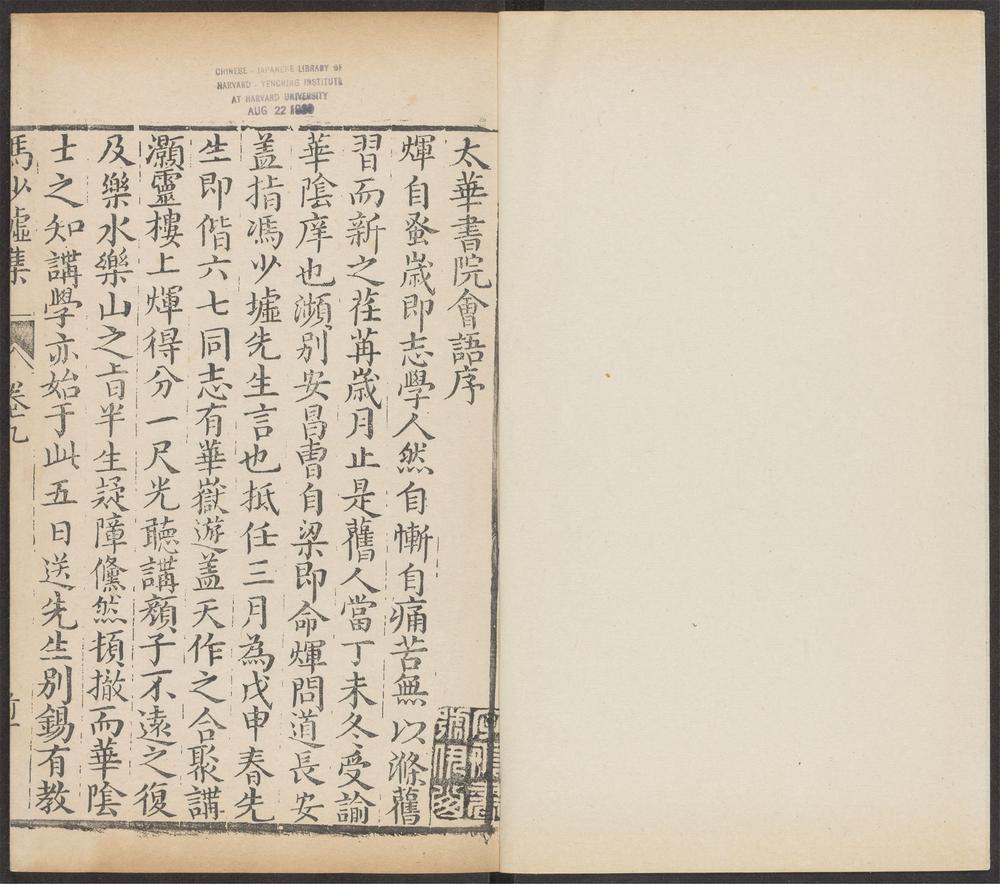 CHINESE - JAPANESE LIBRARY OF
HARVARD - YENCHING INSTITUTE
AT HARVARD UNIVERSITY
AUG 22
太華書院會語序
煇自蚤歳即志學人然自慚自痛苦無以滌舊
習而新之荏苒歳月止是舊人當丁未冬受諭
華陰庠也瀕别安昌曺自梁即命煇問道長安
盖指馮少墟先生言也抵任三月為戊申春先
生即偕六七同志有華嶽遊盖天作之合聚講
灝靈樓上煇得分一尺光聽講顏子不遠之復
及樂水樂山之旨半生疑障儻然頓撤而華陰
士之知講學亦始于此五日送先生别錫有教
馮少墟集
卷十九